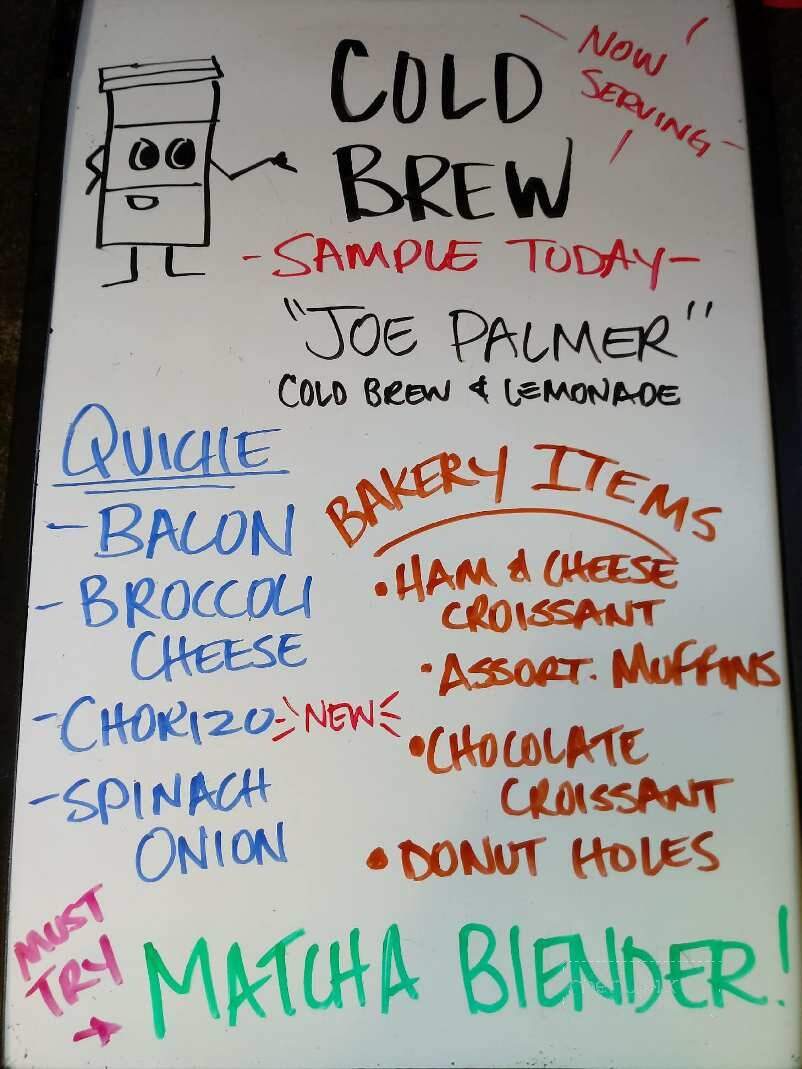 COLD
BREW
NOW
SERVING
-SAMPLE TODAY-
"JOE PALMER"
COLD BREW & LEMONADE
QUICHE
- BACON
- BROCCOLI
CHEESE
- CHORIZO NEW
- SPINACH
ONION
BAKERY ITEMS
• HAM & CHEESE
CROISSANT
• ASSORT. MUFFINS
• CHOCOLATE
CROISSANT
• DONUT HOLES
MUST
TRY
→ MATCHA BLENDER!